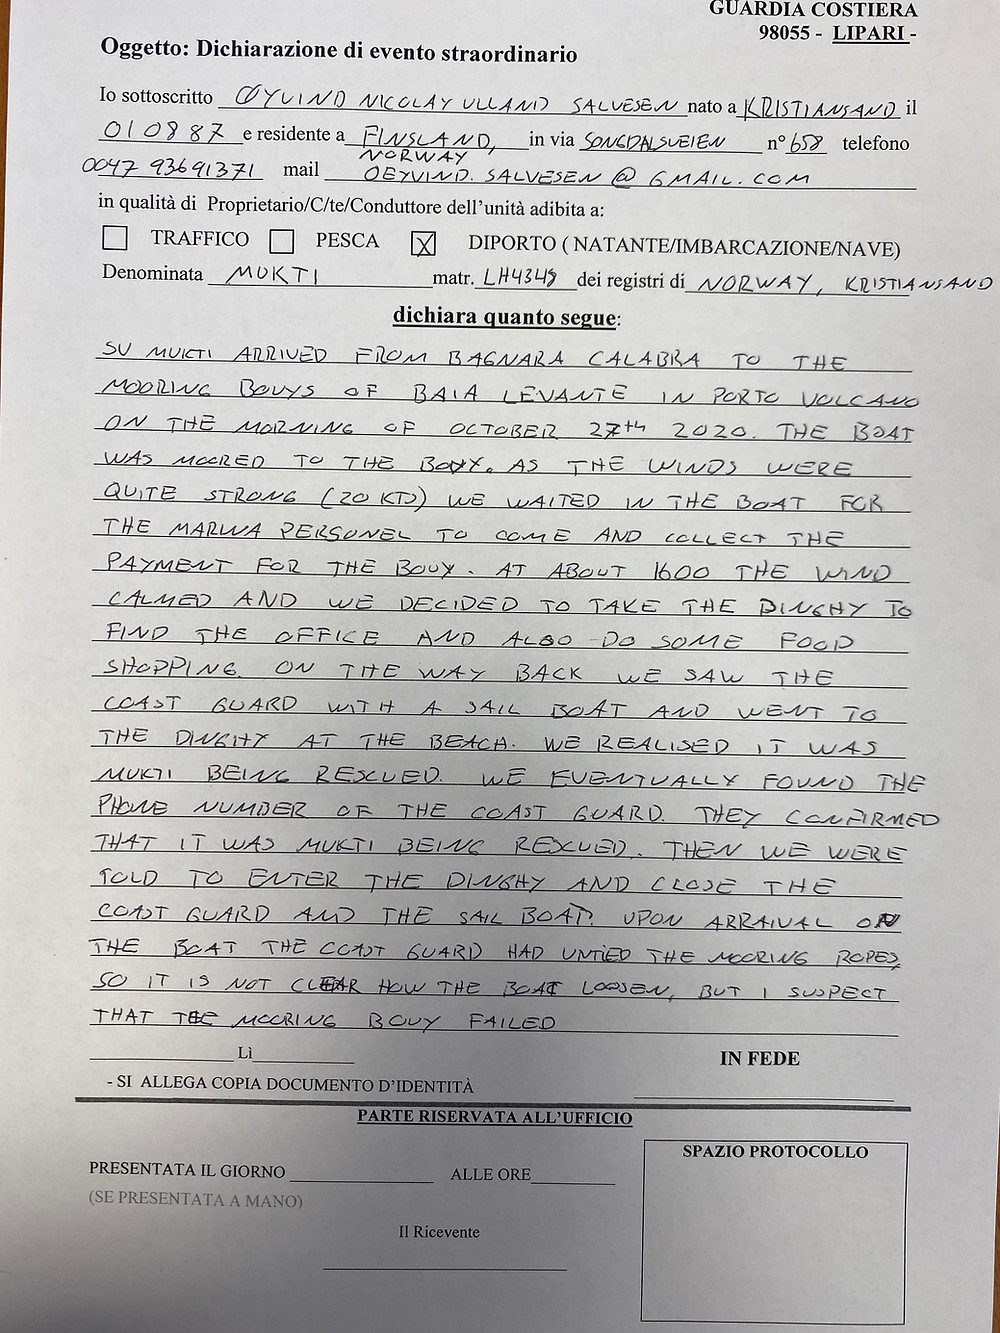 GUARDIA COSTIERA
98055 - LIPARI -
Oggetto: Dichiarazione di evento straordinario
Io sottoscritto ØYVIND NICOLAY ULLAND SALVESEN nato a KRISTIANSAND il
010887 e residente a FINSLAND, in via SONGDALSVEIEN n° 658 telefono
NORWAY
0047 93691371 mail OEYVIND.SALVESEN@GMAIL.COM
in qualità di Proprietario/C/te/Conduttore dell'unità adibita a:
TRAFFICO PESCA X DIPORTO ( NATANTE/IMBARCAZIONE/NAVE)
Denominata MUKTI matr. LH4349 dei registri di NORWAY, KRISTIANSAND
dichiara quanto segue:
SV MUKTI ARRIVED FROM BAGNARA CALABRA TO THE
MOORING BOUYS OF BAIA LEVANTE IN PORTO VOLCANO
ON THE MORNING OF OCTOBER 27th 2020. THE BOAT
WAS MOORED TO THE BOUY. AS THE WINDS WERE
QUITE STRONG (20 KTS) WE WAITED IN THE BOAT FOR
THE MARWA PERSONEL TO COME AND COLLECT THE
PAYMENT FOR THE BOUY. AT ABOUT 1600 THE WIND
CALMED AND WE DECIDED TO TAKE THE DINGHY TO
FIND THE OFFICE AND ALSO DO SOME FOOD
SHOPPING. ON THE WAY BACK WE SAW THE
COAST GUARD WITH A SAIL BOAT AND WENT TO
THE DINGHY AT THE BEACH. WE REALISED IT WAS
MUKTI BEING RESCUED. WE EVENTUALLY FOUND THE
PHONE NUMBER OF THE COAST GUARD. THEY CONFIRMED
THAT IT WAS MUKTI BEING RESCUED. THEN WE WERE
TOLD TO ENTER THE DINGHY AND CLOSE THE
COAST GUARD AND THE SAIL BOAT. UPON ARRAIVAL ON
THE BOAT THE COAST GUARD HAD UNTIED THE MOORING ROPES,
SO IT IS NOT CLEAR HOW THE BOAT LOOSEN, BUT I SUSPECT
THAT THE MOORING BOUY FAILED
Lì
IN FEDE
- SI ALLEGA COPIA DOCUMENTO D'IDENTITÀ
PARTE RISERVATA ALL'UFFICIO
SPAZIO PROTOCOLLO
PRESENTATA IL GIORNO ALLE ORE
(SE PRESENTATA A MANO)
Il Ricevente